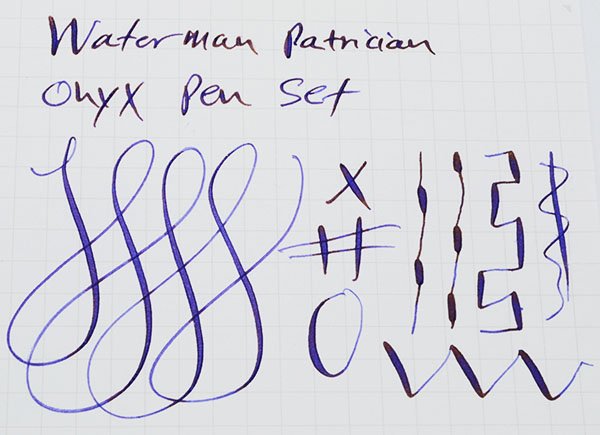 Waterman Patrician
Onyx Pen Set
X